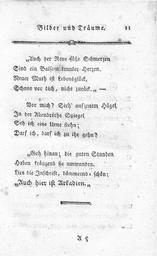 Bilder und Träume. 11
"Auch der Reue süße Schmerzen
Sind ein Balsam kranker Herzen.
Neuer Muth ist Lebensglück,
Schaue vor dich, nicht zurück." —
Vor mich? Seh' auf jenem Hügel
In der Abendröthe Spiegel
Seh' ich eine Urne stehn;
Darf ich, darf ich zu ihr gehn?
"Geh hinan; die guten Stunden
Haben kränzend sie umwunden.
Lies die Inschrift, dämmernd-schön:
"Auch hier ist Arkadien."
A 5